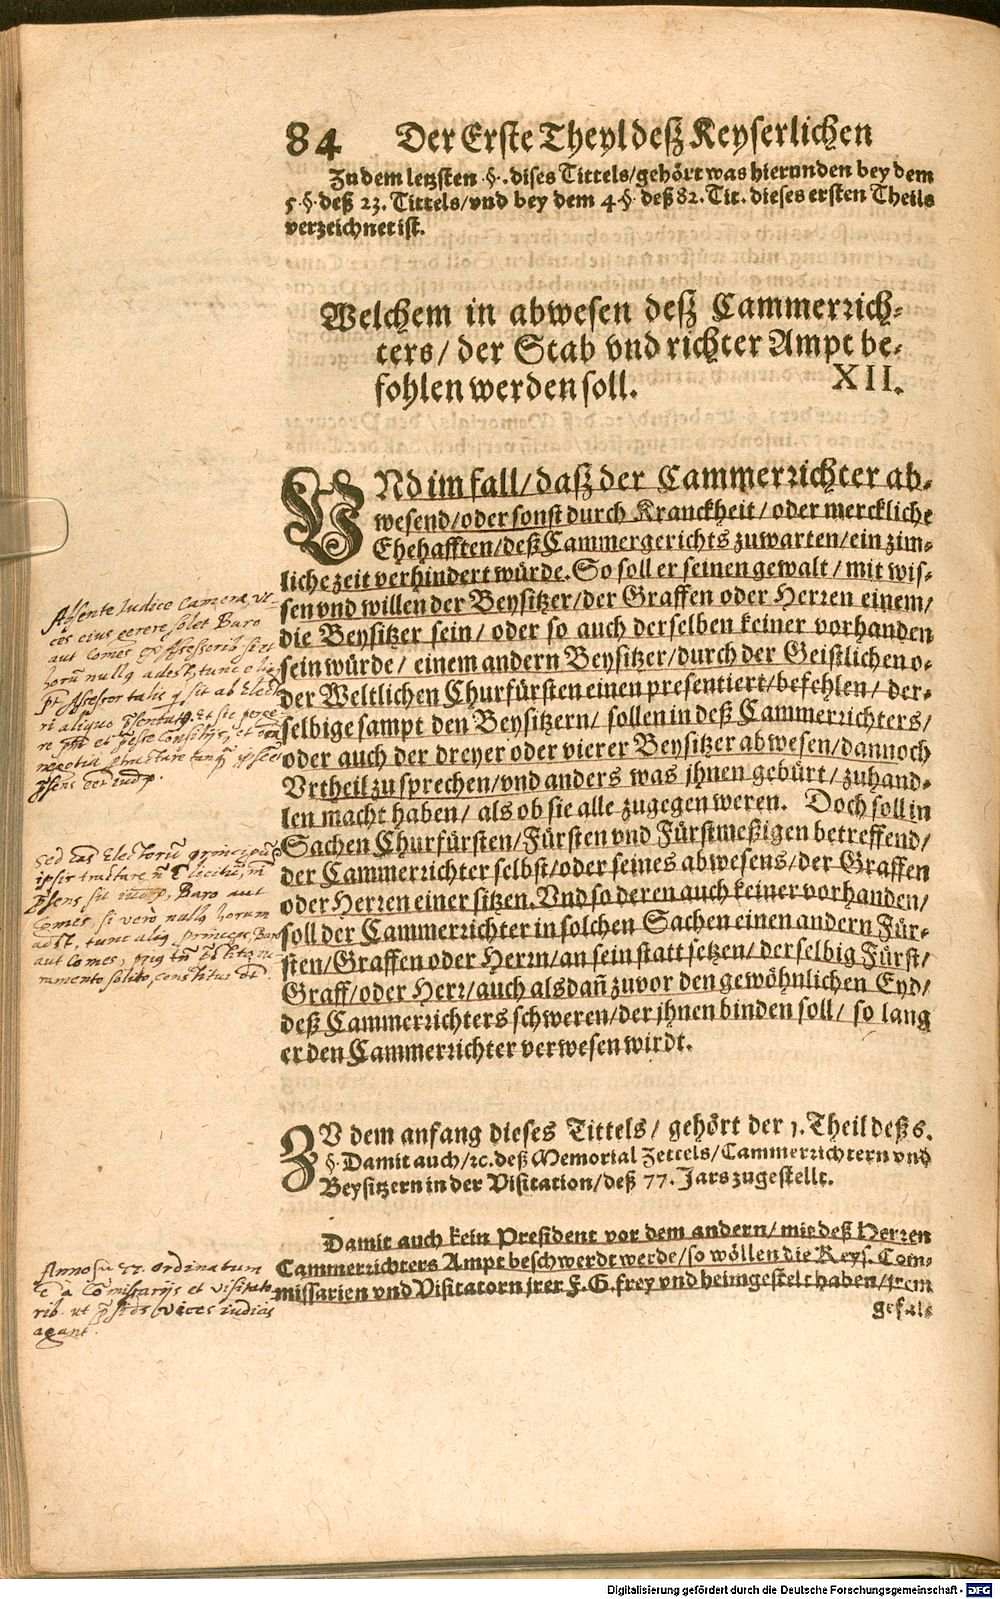 84 Der Erste Theyl deß Keyserlichen
Zu dem letzsten §. dises Tittels/gehört was hierunden bey dem
5 §. deß 23. Tittels/vnd bey dem 4 §. deß 82. Tit. dieses ersten Theils
verzeichnet ist.
Welchem in abwesen deß Cammerrich-
ters/ der Stab vnd richter Ampt be-
fohlen werden soll. XII.
VNd im fall/daß der Cammerrichter ab-
wesend/oder sonst durch Kranckheit/oder merckliche
Ehehafften/deß Cammergerichts zuwarten/ein zim-
liche zeit verhindert würde. So soll er seinen gewalt/ mit wis-
sen vnd willen der Beysitzer/der Graffen oder Herren einem/
die Beysitzer sein/ oder so auch derselben keiner vorhanden
sein würde/ einem andern Beysitzer/durch der Geistlichen o-
der Weltlichen Churfürsten einen presentiert/befehlen/ der-
selbige sampt den Beysitzern/ sollen in deß Cammerrichters/
oder auch der dreyer oder vierer Beysitzer abwesen/dannoch
Vrtheil zu sprechen/vnd anders was jhnen gebürt/ zuhand-
len macht haben/ als ob sie alle zugegen weren. Doch soll in
Sachen Churfürsten/Fürsten vnd Fürstmeßigen betreffend/
der Cammerrichter selbst/oder seines abwesens/der Graffen
oder Herren einer sitzen. Vnd so deren auch keiner vorhanden/
soll der Cammerrichter in solchen Sachen einen andern Für-
sten/Graffen oder Herrn/an sein statt setzen/ derselbig Fürst/
Graff/oder Herr/auch alsdañ zuvor den gewöhnlichen Eyd/
deß Cammerrichters schweren/der jhnen binden soll/ so lang
er den Cammerrichter verwesen wirdt.
ZV dem anfang dieses Tittels/ gehört der 1. Theil deß 6.
§. Damit auch/ꝛc. deß Memorial Zettels/Cammerrichtern vnd
Beysitzern in der Visitation/deß 77. Jars zugestellt.
Damit auch kein President vor dem andern/ mit deß Herren
Cammerrichters Ampt beschwerdt werde/so wöllen die Keys. Com-
missarien vnd Visitatorn jrer F. G. frey vnd heimgestelt haben/jrem
gefal-
Absente Iudice Camerae, vi-
ces eius gerere solet Baro
aut Comes
nullus adest, tunc
Assessor talis sit ab Elect
ri aliquo
Sed
ipsi tractare
Baro aut
Comes, si vero nullus horum
adest, tunc princeps, Baro
aut Comes,
ramento solito, constitu
Anno ordinatum
Commissarijs et visitato
rib. ut vices iudicis
agant.
Digitalisierung gefördert durch die Deutsche Forschungsgemeinschaft - DFG